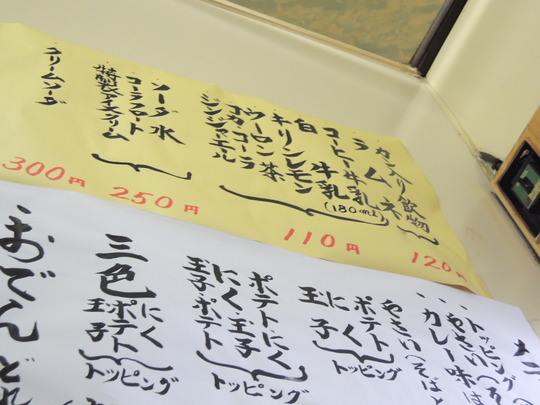 カン入り飲物
ラムネ
120円
コーヒー牛乳(180ml)
白牛乳
キリンレモン
ウーロン茶
コカコーラ
ジンジャエール
110円
ソーダ水
コーラフロート
特製DXアイスクリーム
250円
クリームソーダ
300円
トッピング
・やさい(そば
・カレー味は
やさい(そばと
ポテト
にく
玉子
トッピング
ポテト・にく
にく・玉子
玉子・ポテト
トッピング
三色
にく
ポテト
玉子
トッピング
・おでん